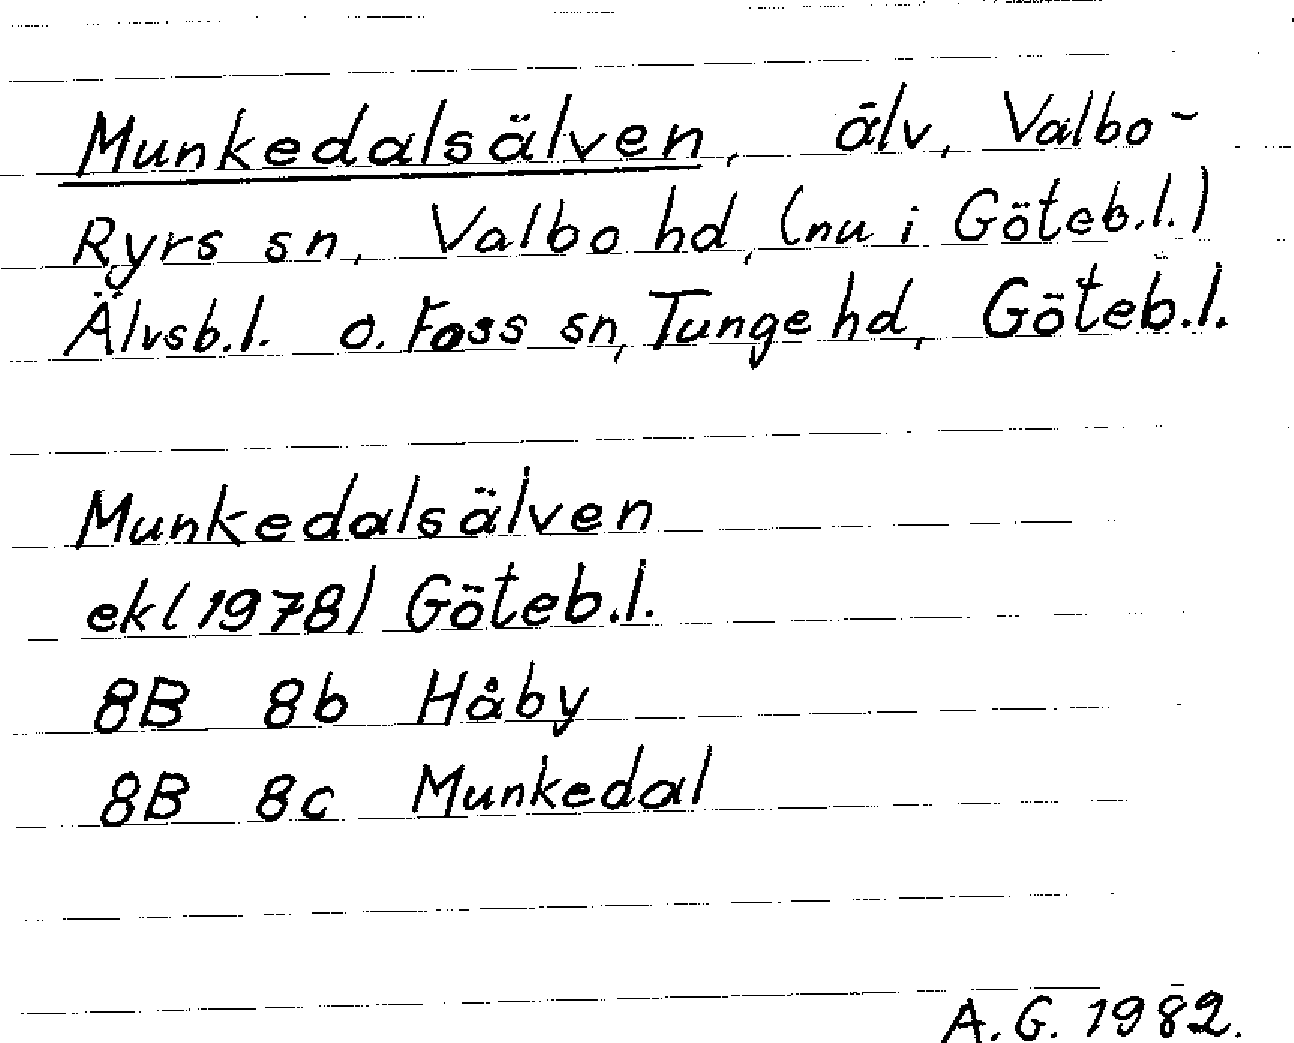 Munkedalsälven, älv, Valbo-
Ryrs sn, Valbo hd, (nu i Göteb.l.)
Älvsb.l. o. Foss sn, Tunge hd, Göteb.l.
Munkedalsälven
ekl (1978) Göteb.l.
8B 8b Håby
8B 8c Munkedal
A.G. 1982.